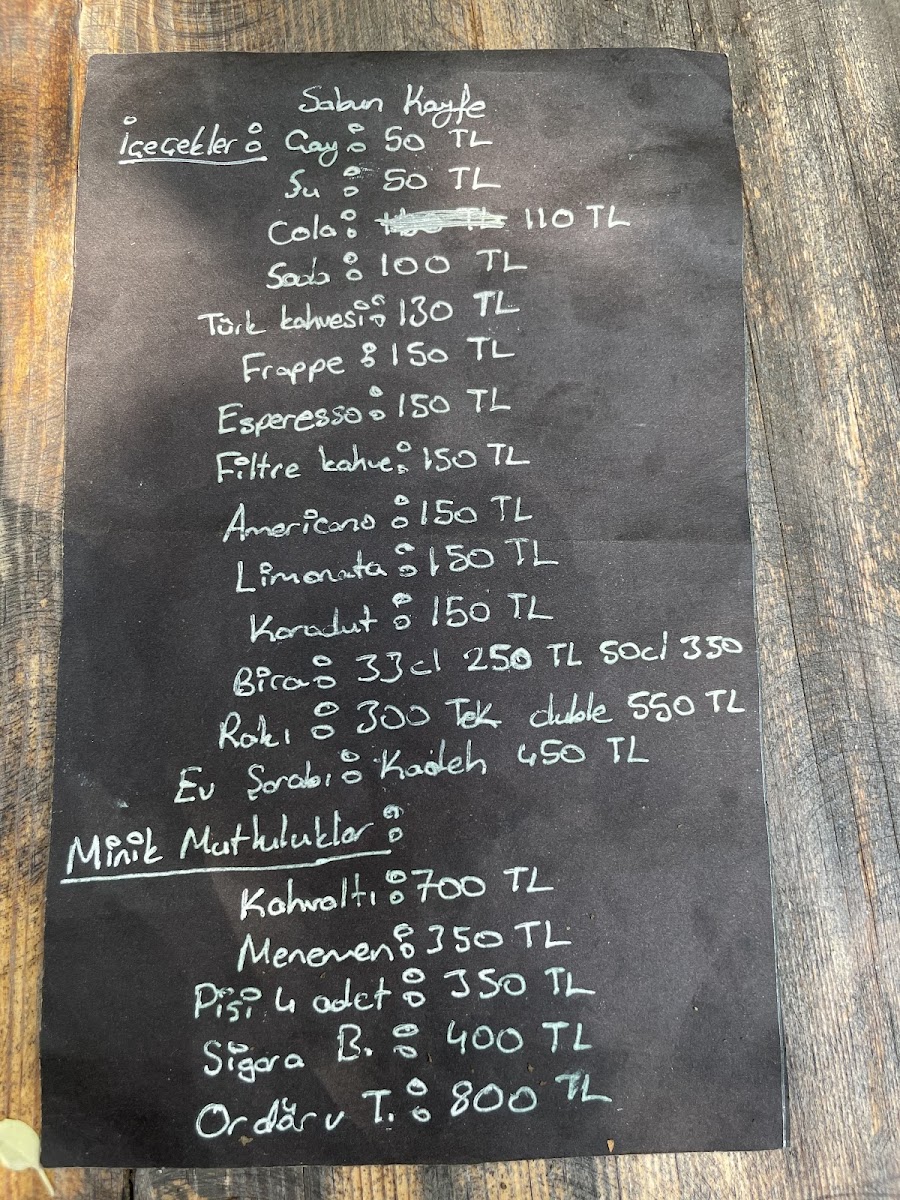 Sabun Kayfe
İçeçekler: Çay: 50 TL
Su: 50 TL
Cola: 110 TL
Soda: 100 TL
Türk kahvesi: 130 TL
Frappe: 150 TL
Esperesso: 150 TL
Filtre kahve: 150 TL
Americano: 150 TL
Limonata: 150 TL
Karadut: 150 TL
Bira: 33cl 250 TL 50cl 350
Rakı: 300 Tek duble 550 TL
Ev Şarabı: Kadeh 450 TL
Minik Mutluluklar:
Kahvaltı: 700 TL
Menemen: 350 TL
Pişi 4 adet: 350 TL
Sigara B.: 400 TL
Ordärv T.: 800 TL